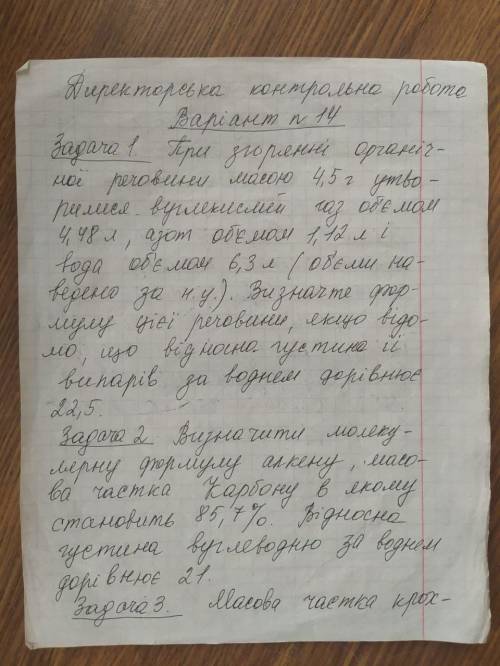 Директорська контрольна робота
Варіант n 14
Задача 1. При згорянні органіч-
ної речовини масою 4,5 г утво-
рилися вуглекислий газ об'ємом
4,48 л, азот об'ємом 1,12 л і
вода об'ємом 6,3 л (об'єми на-
ведено за н.у.). Визначте фор-
мулу цієї речовини, якщо відо-
мо, що відносна густина її
випарів за воднем дорівнює
22,5.
Задача 2 Визначити молеку-
лярну формулу алкену, масо-
ва частка Карбону в якому
становить 85,7%. Відносна
густина вуглеводню за воднем
дорівнює 21.
Задача 3. Масова частка крох-